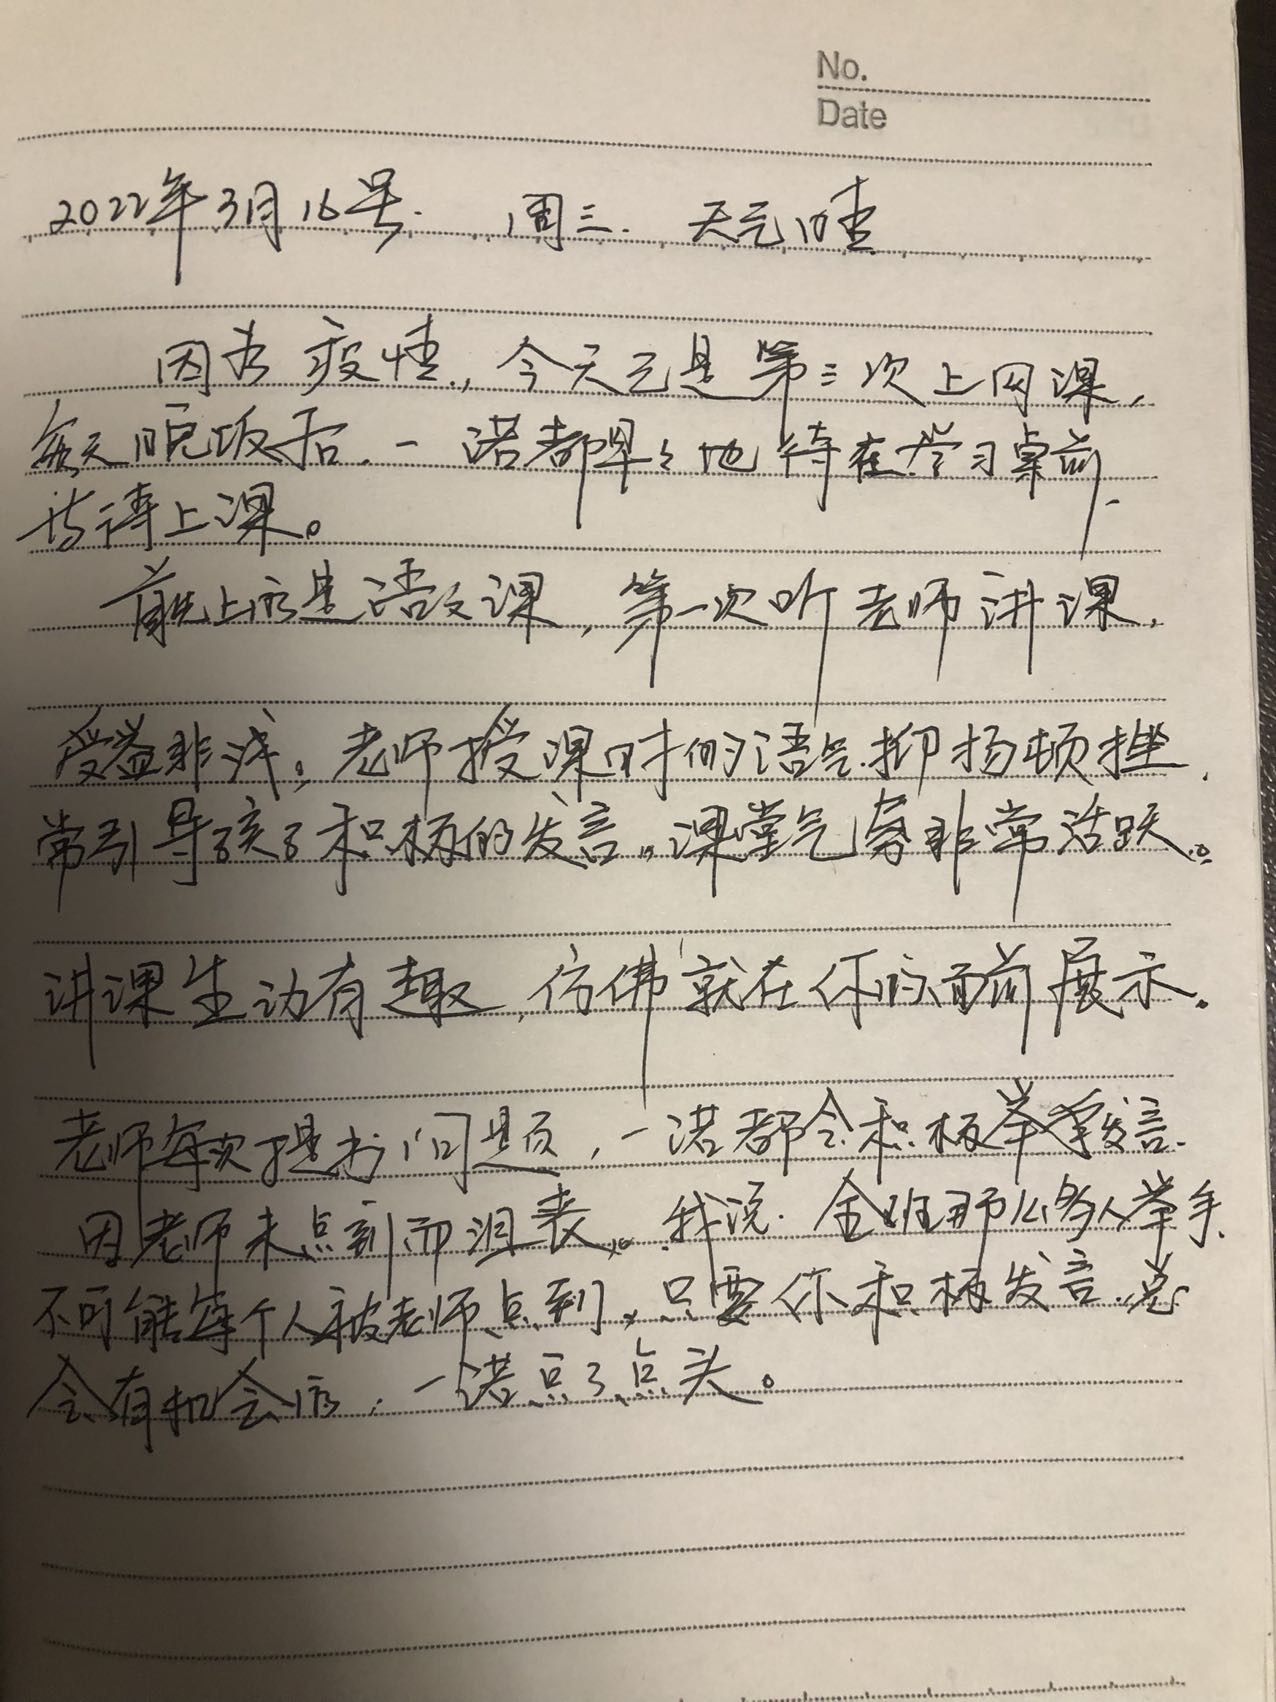 No.
Date
2022年3月16号. 周三. 天气晴
因为疫情, 今天已是第三次上网课,
每天晚饭后. 一诺都早早地待在学习桌前,
等待上课。
首先上的是语文课, 第一次听老师讲课,
受益非浅。老师授课时的语气抑扬顿挫,
常引导孩子积极的发言。课堂气氛非常活跃。
讲课生动有趣, 仿佛就在你的面前展示。
老师每次提出问题, 一诺都会积极举手发言.
因老师未点到而沮丧。我说. 全班那么多人举手,
不可能每个人被老师点到, 只要你积极发言. 总
会有机会的, 一诺点了点头。